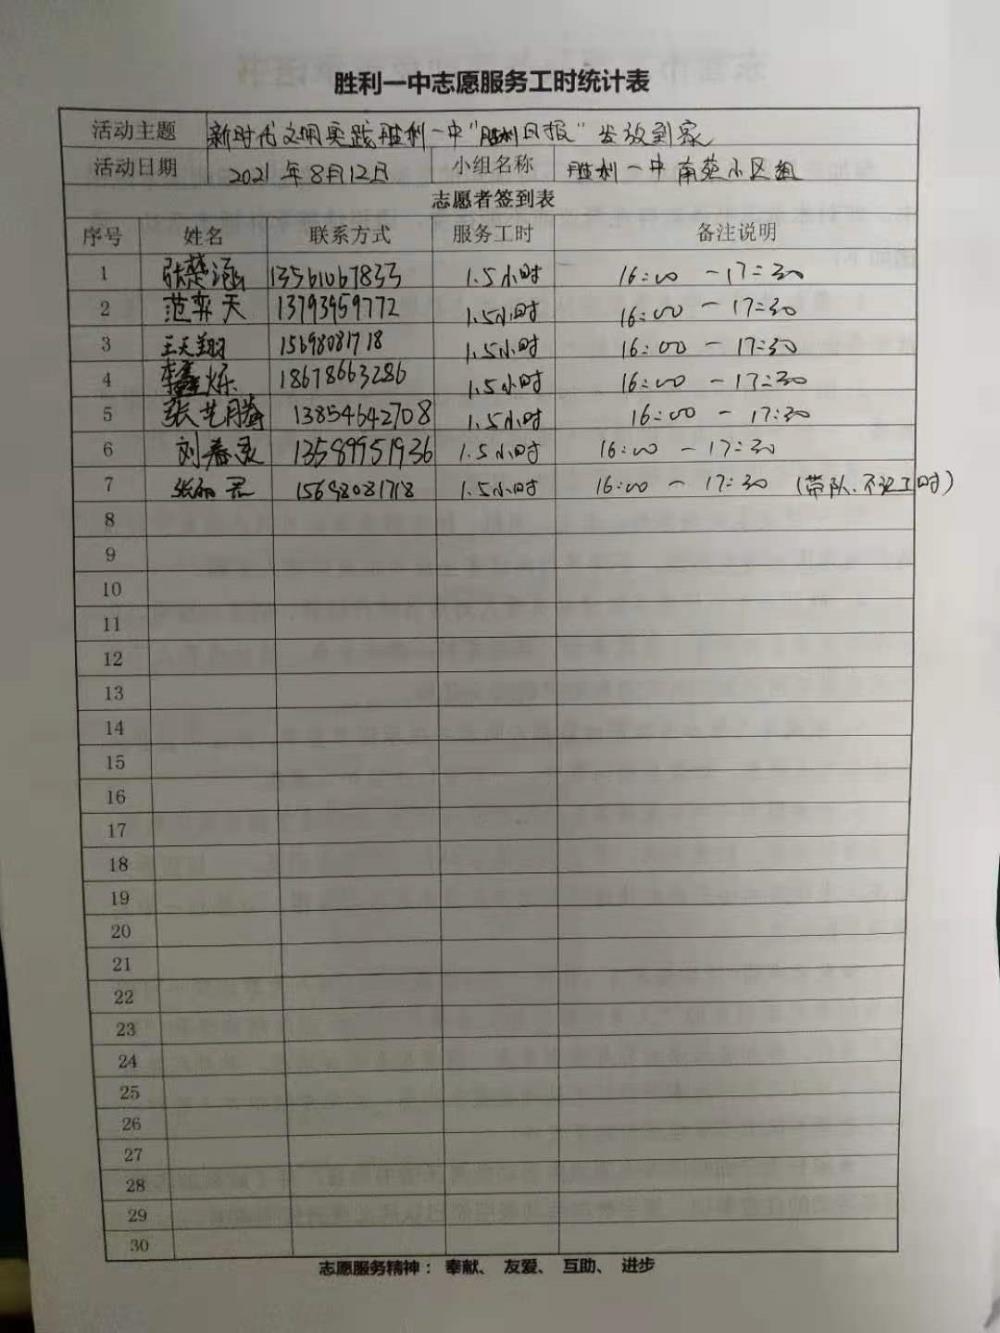 胜利一中志愿服务工时统计表
活动主题 新时代文明实践胜利一中“胜利日报”发放到家
活动日期 2021年8月12日 小组名称 胜利一中南苑小区组
志愿者签到表
序号 姓名 联系方式 服务工时 备注说明
1 张楚涵 13561067833 1.5小时 16:00-17:30
2 范弈天 13793959772 1.5小时 16:00-17:30
3 王天翔 15698081718 1.5小时 16:00-17:30
4 李鑫烁 18678663286 1.5小时 16:00-17:30
5 张艺腾 13854642708 1.5小时 16:00-17:30
6 刘春灵 13589951936 1.5小时 16:00-17:30
7 张丽君 15698081718 1.5小时 16:00-17:30 (带队.不记工时)
8
9
10
11
12
13
14
15
16
17
18
19
20
21
22
23
24
25
26
27
28
29
30
志愿服务精神: 奉献、 友爱、 互助、 进步